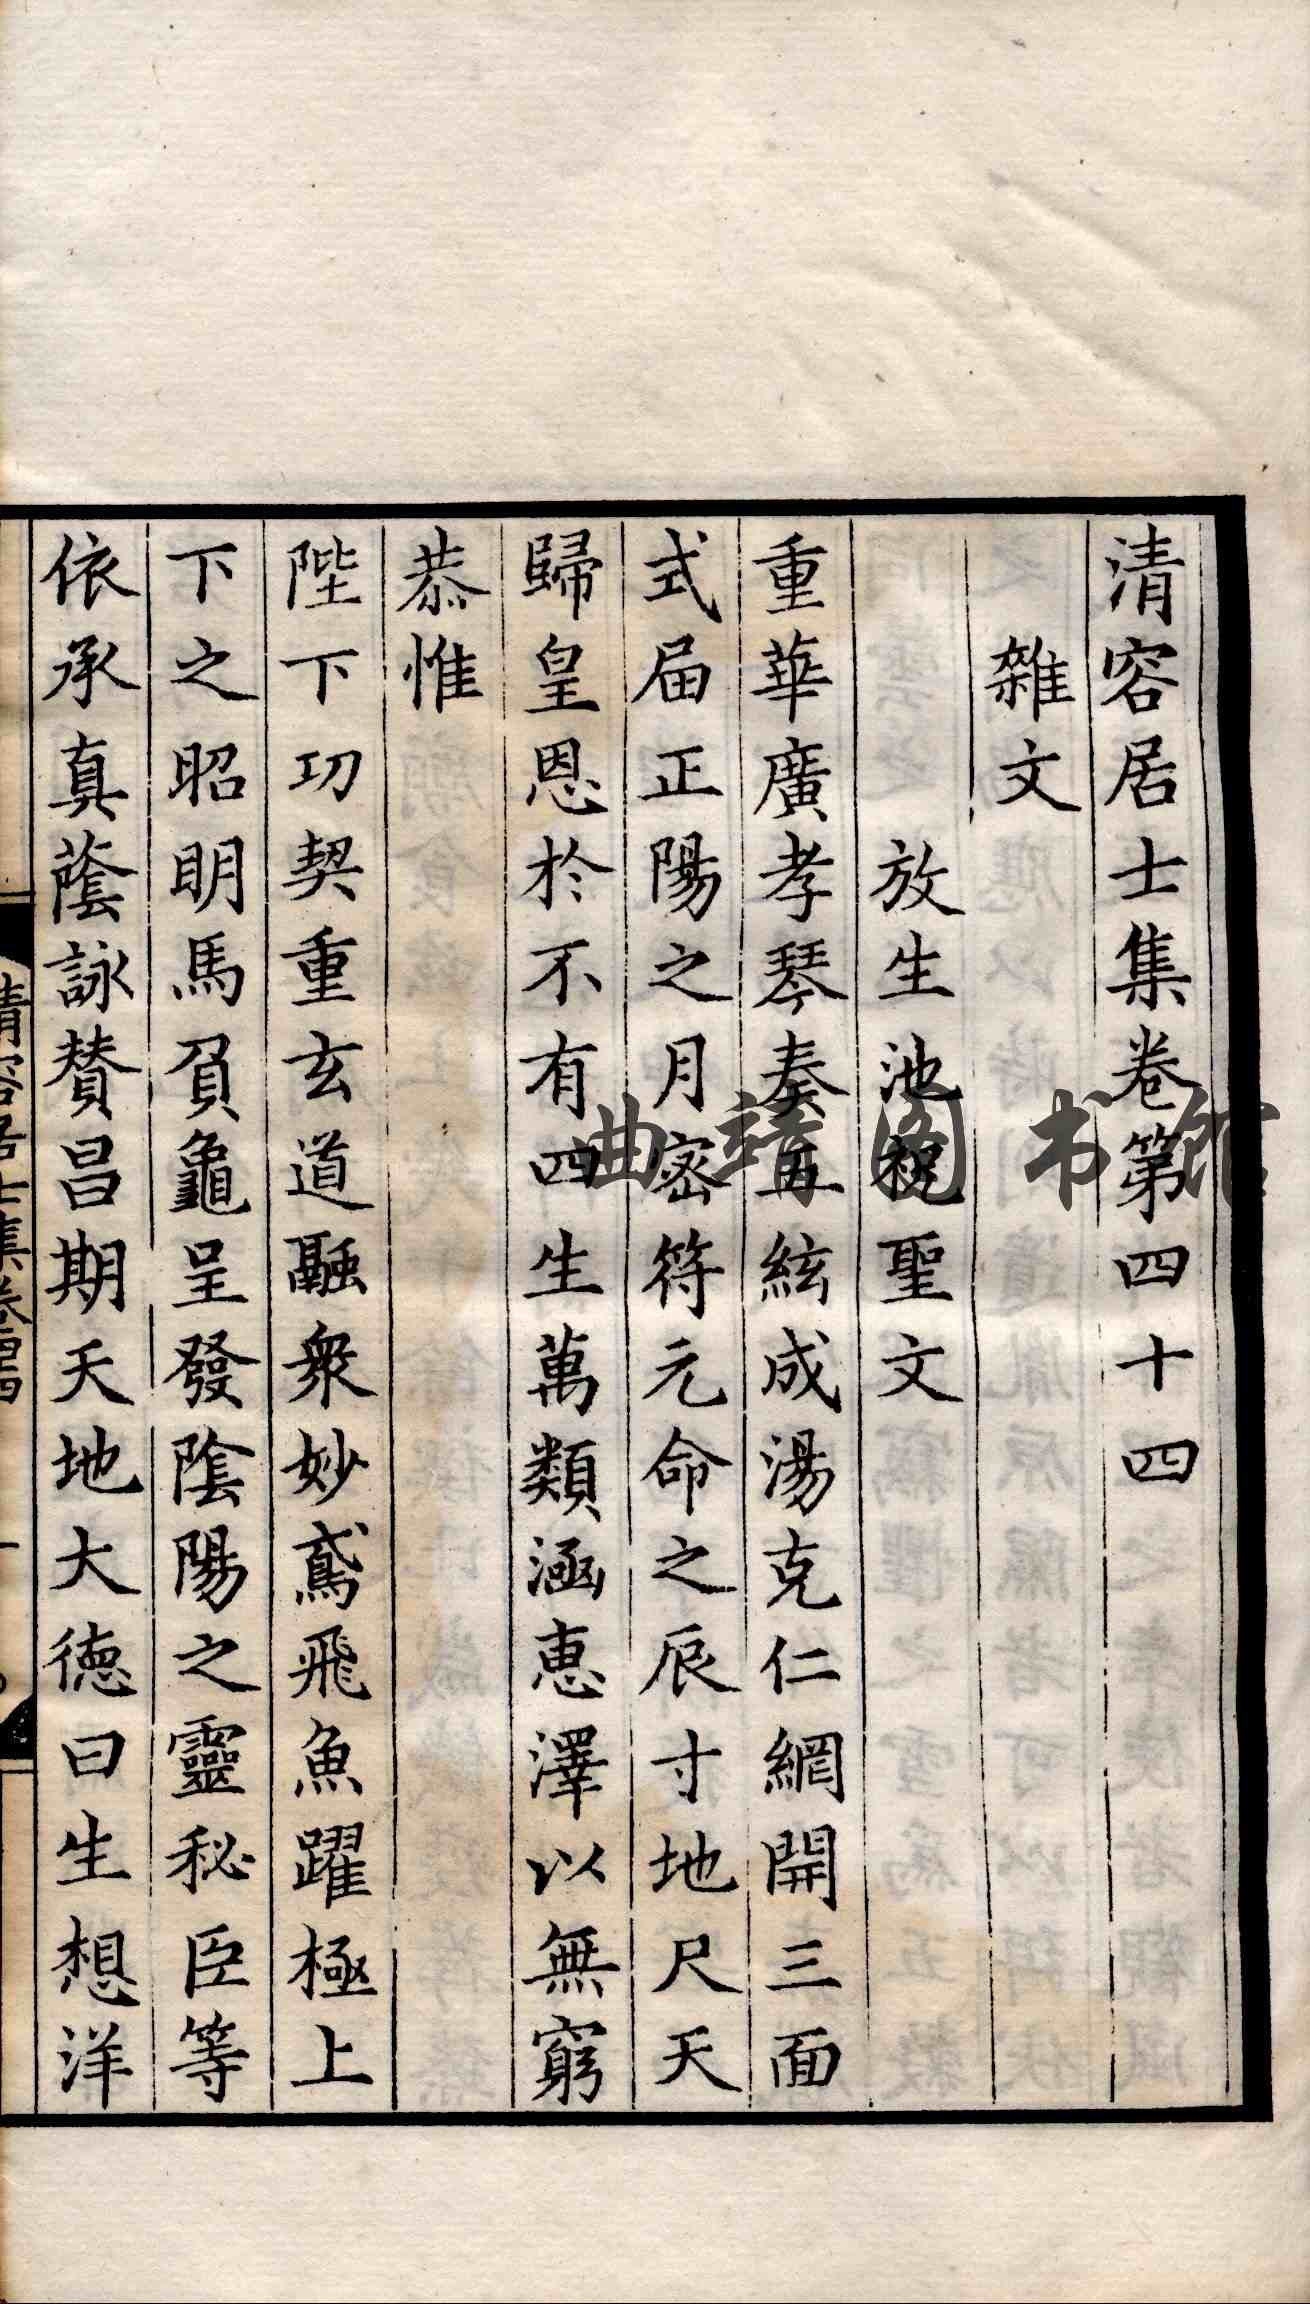 清容居士集卷第四十四
雜文
放生池祝聖文
重華廣孝琴奏五絃成湯克仁網開三面
式届正陽之月密符元命之辰寸地尺天
歸皇恩於不有四生萬類涵恵澤以無窮
恭惟
陛下功契重玄道融衆妙鳶飛魚躍極上
下之昭明馬負龜呈發陰陽之靈秘臣等
依承真蔭詠賛昌期天地大徳曰生想洋
清容居士集卷四十四
一
曲靖图书馆